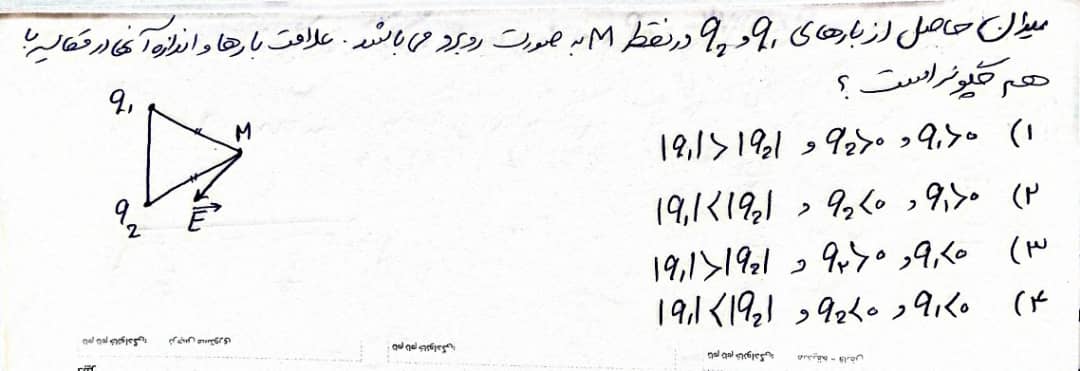 میدان حاصل از بارهای q₁ و q₂ در نقطه M به صورت روبرو می باشد. علامت بارها و اندازه آنها در مقایسه با
هم چگونه است؟
q₁
M
q₂
E
۱) q₁>0 و q₂>0 و |q₁|>|q₂|
۲) q₁>0 و q₂<0 و |q₁|<|q₂|
۳) q₁<0 و q₂>0 و |q₁|>|q₂|
۴) q₁<0 و q₂<0 و |q₁|<|q₂|